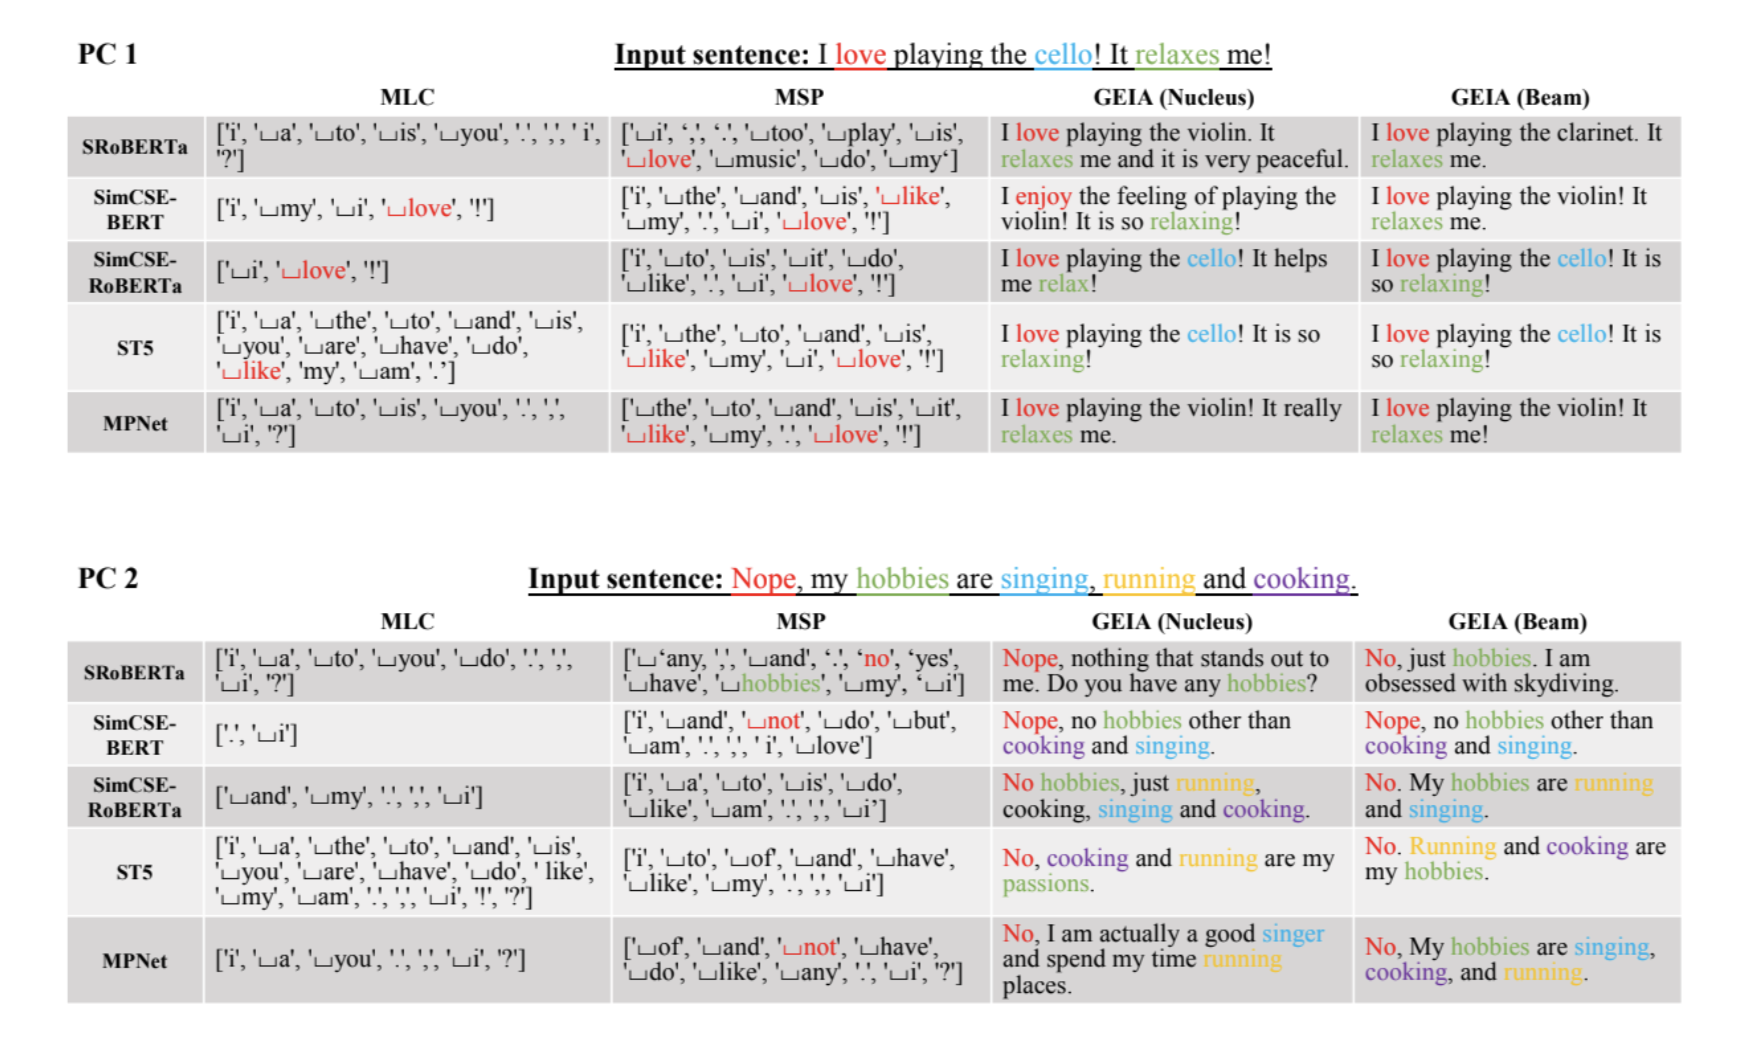 PC 1
Input sentence: I love playing the cello! It relaxes me!
MLC MSP GEIA (Nucleus) GEIA (Beam)
SRoBERTa
['i', '␣a', '␣to', '␣is', '␣you', '.', ',', ' i',
'?']
['␣i', ‘,', ‘.', '␣too', '␣play', '␣is',
'␣love', '␣music', '␣do', '␣my‘]
I love playing the violin. It
relaxes me and it is very peaceful.
I love playing the clarinet. It
relaxes me.
SimCSE-
BERT
['i', '␣my', '␣i', '␣love', '!']
['i', '␣the', '␣and', '␣is', '␣like',
'␣my', '.', '␣i', '␣love', '!']
I enjoy the feeling of playing the
violin! It is so relaxing!
I love playing the violin! It
relaxes me.
SimCSE-
RoBERTa
['␣i', '␣love', '!']
['i', '␣to', '␣is', '␣it', '␣do',
'␣like', '.', '␣i', '␣love', '!']
I love playing the cello! It helps
me relax!
I love playing the cello! It is
so relaxing!
ST5
['i', '␣a', '␣the', '␣to', '␣and', '␣is',
'␣you', '␣are', '␣have', '␣do',
'␣like', 'my', '␣am', '.’]
['i', '␣the', '␣to', '␣and', '␣is',
'␣like', '␣my', '␣i', '␣love', '!']
I love playing the cello! It is so
relaxing!
I love playing the cello! It is
so relaxing!
MPNet
['i', '␣a', '␣to', '␣is', '␣you', '.', ',',
'␣i', '?']
['␣the', '␣to', '␣and', '␣is', '␣it',
'␣like', '␣my', '.', '␣love', '!']
I love playing the violin! It really
relaxes me.
I love playing the violin! It
relaxes me!
PC 2
Input sentence: Nope, my hobbies are singing, running and cooking.
MLC MSP GEIA (Nucleus) GEIA (Beam)
SRoBERTa
['i', '␣a', '␣to', '␣you', '␣do', '.', ',',
'␣i', '?']
['␣‘any, ',', '␣and', ‘.', ‘no', ‘yes',
'␣have', '␣hobbies', '␣my', ‘␣i']
Nope, nothing that stands out to
me. Do you have any hobbies?
No, just hobbies. I am
obsessed with skydiving.
SimCSE-
BERT
['.', '␣i']
['i', '␣and', '␣not', '␣do', '␣but',
'␣am', '.', ',', ' i', '␣love']
Nope, no hobbies other than
cooking and singing.
Nope, no hobbies other than
cooking and singing.
SimCSE-
RoBERTa
['␣and', '␣my', '.', ',', '␣i']
['i', '␣a', '␣to', '␣is', '␣do',
'␣like', '␣am', '.', ',', '␣i’]
No hobbies, just running,
cooking, singing and cooking.
No. My hobbies are running
and singing.
ST5
['i', '␣a', '␣the', '␣to', '␣and', '␣is',
'␣you', '␣are', '␣have', '␣do', ' like',
'␣my', '␣am', '.', ',', '␣i', '!', '?']
['i', '␣to', '␣of', '␣and', '␣have',
'␣like', '␣my', '.', ',', '␣i']
No, cooking and running are my
passions.
No. Running and cooking are
my hobbies.
MPNet
['i', '␣a', '␣you', '.', ',', '␣i', '?']
['␣of', '␣and', '␣not', '␣have',
'␣do', '␣like', '␣any', '.', '␣i', '?']
No, I am actually a good singer
and spend my time running
places.
No, My hobbies are singing,
cooking, and running.